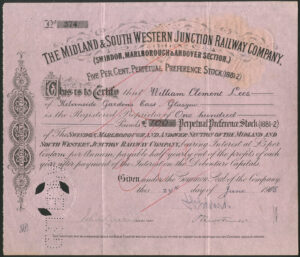 No. 374
THE MIDLAND & SOUTH WESTERN JUNCTION RAILWAY COMPANY.
(SWINDON, MARLBOROUGH & ANDOVER SECTION.)
FIVE PER CENT. PERPETUAL PREFERENCE STOCK (1881-2)
This is to Certify that William Clement Lees
of Kelvinside Gardens East, Glasgow
is the Registered Proprietor of One hundred
Perpetual Preference Stock (1881-2)
of THE SWINDON, MARLBOROUGH, AND ANDOVER SECTION OF THE MIDLAND AND
SOUTH WESTERN JUNCTION RAILWAY COMPANY, bearing Interest at £5 per
centum per annum, payable half yearly out of the profits of each
year after payment of the Interest on the Debenture Capital.
Given under the Common Seal of the Company
this 29th day of June